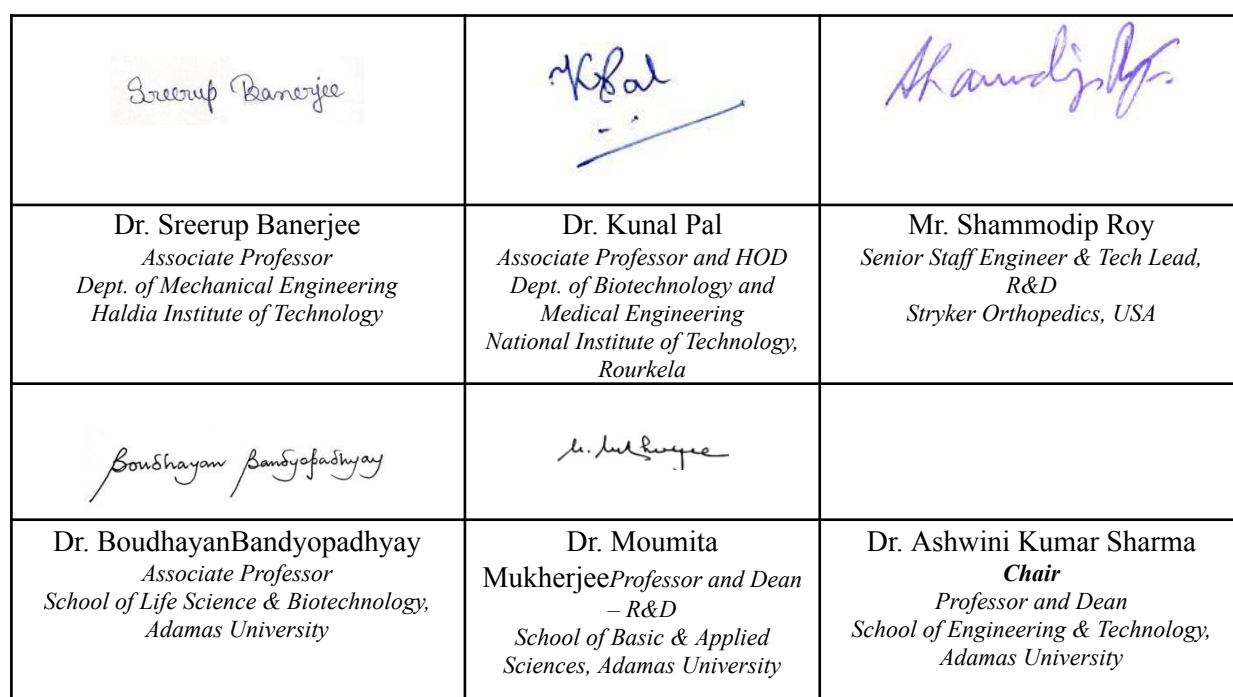 Sreerup Banerjee
K Pal
Dr. Sreerup Banerjee
Associate Professor
Dept. of Mechanical Engineering
Haldia Institute of Technology
Dr. Kunal Pal
Associate Professor and HOD
Dept. of Biotechnology and
Medical Engineering
National Institute of Technology,
Rourkela
Mr. Shammodip Roy
Senior Staff Engineer & Tech Lead,
R&D
Stryker Orthopedics, USA
Boudhayan Bandyopadhyay
M. Mukherjee
Dr. BoudhayanBandyopadhyay
Associate Professor
School of Life Science & Biotechnology,
Adamas University
Dr. Moumita
MukherjeeProfessor and Dean
– R&D
School of Basic & Applied
Sciences, Adamas University
Dr. Ashwini Kumar Sharma
Chair
Professor and Dean
School of Engineering & Technology,
Adamas University